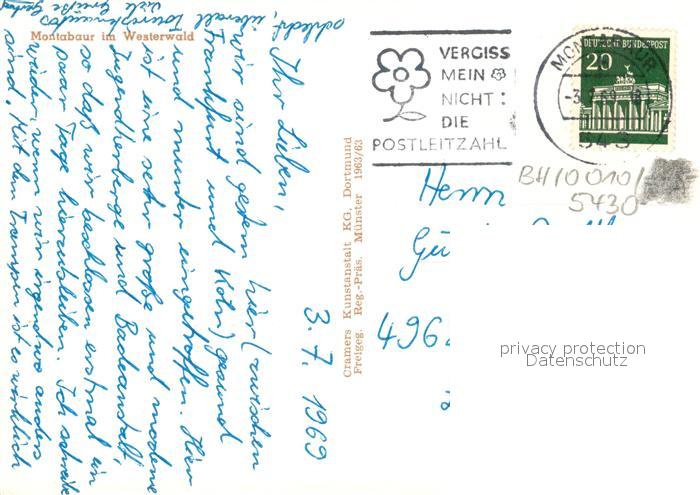 Montabaur im Westerwald
3. 7. 1969
Ihr Lieben,
wir sind gestern hier (zwischen
Frankfurt und Köln) gesund
und munter eingetroffen. Hier
ist eine sehr große und moderne
Jugendherberge und Badeanstalt,
so daß wir beschlossen erstmal ein
paar Tage hierzubleiben. Ich schreibe
wieder, wenn wir irgendwo anders
sind. Mit dem Trampen ist es wirklich
schlecht, überall
viele Grüße
Cramers Kunstanstalt KG, Dortmund
Freigeg. Reg.-Präs. Münster 1963/63
VERGISS
MEIN
NICHT:
DIE
POSTLEITZAHL
MONTABAUR
DEUTSCHE BUNDESPOST
20
BH/0010/
5430
Herrn
Gü
496
privacy protection
Datenschutz